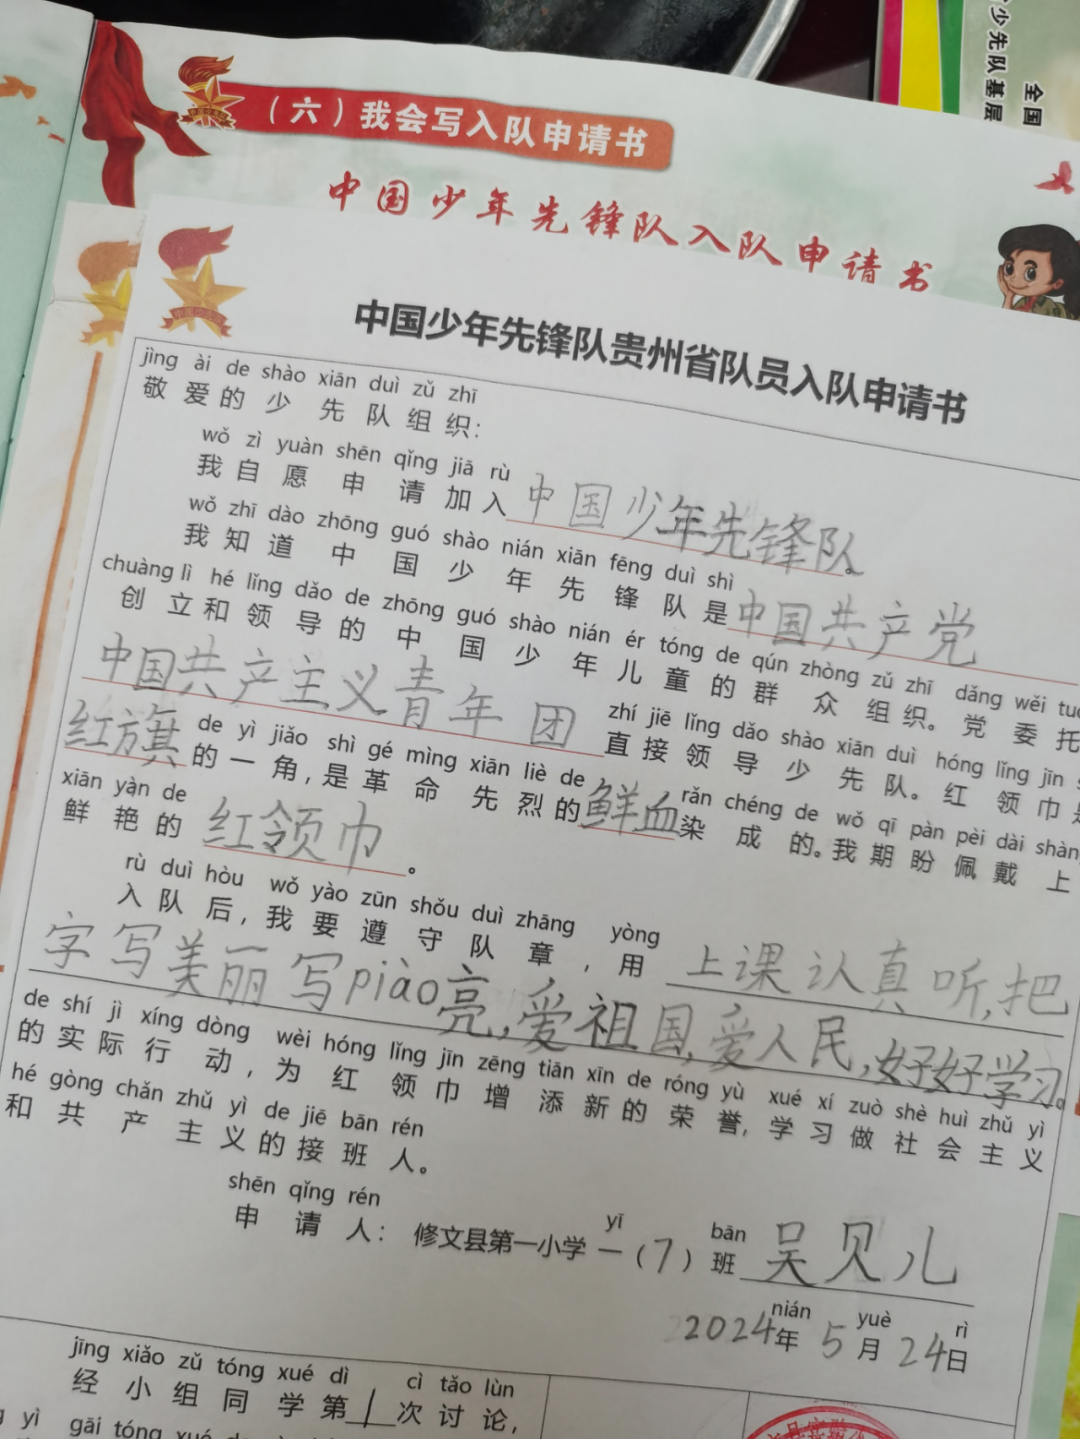 全国
少先队基层
（六）我会写入队申请书
中国少年先锋队入队申请书
中国少年先锋队贵州省队员入队申请书
jìng ài de shào xiān duì zǔ zhī
敬爱的少先队组织：
wǒ zì yuàn shēn qǐng jiā rù
我自愿申请加入中国少年先锋队。
wǒ zhī dào zhōng guó shào nián xiān fēng duì shì
我知道中国少年先锋队是中国共产党
chuàng lì hé lǐng dǎo de zhōng guó shào nián ér tóng de qún zhòng zǔ zhī dǎng wěi tuō
创立和领导的中国少年儿童的群众组织。党委托
中国共产主义青年团
zhí jiē lǐng dǎo shào xiān duì hóng lǐng jīn
直接领导少先队。红领巾是
de yì jiǎo shì gé mìng xiān liè de
红旗的一角，是革命先烈的鲜血
rǎn chéng de wǒ qī pàn pèi dài shàng
染成的。我期盼佩戴上
xiān yàn de
鲜艳的红领巾。
rù duì hòu wǒ yào zūn shǒu duì zhāng yòng
入队后，我要遵守队章，用上课认真听，把
字写美丽写piào亮，爱祖国，爱人民，好好学习。
de shí jì xíng dòng wèi hóng lǐng jīn zēng tiān xīn de róng yù xué xí zuò shè huì zhǔ yì
的实际行动，为红领巾增添新的荣誉，学习做社会主义
hé gòng chǎn zhǔ yì de jiē bān rén
和共产主义的接班人。
shēn qǐng rén yī bān
申请人：修文县第一小学一（7）班吴贝儿
nián yuè rì
2024年5月24日
jīng xiǎo zǔ tóng xué dì cì tǎo lùn
经小组同学第1次讨论，
yì gāi tóng xué